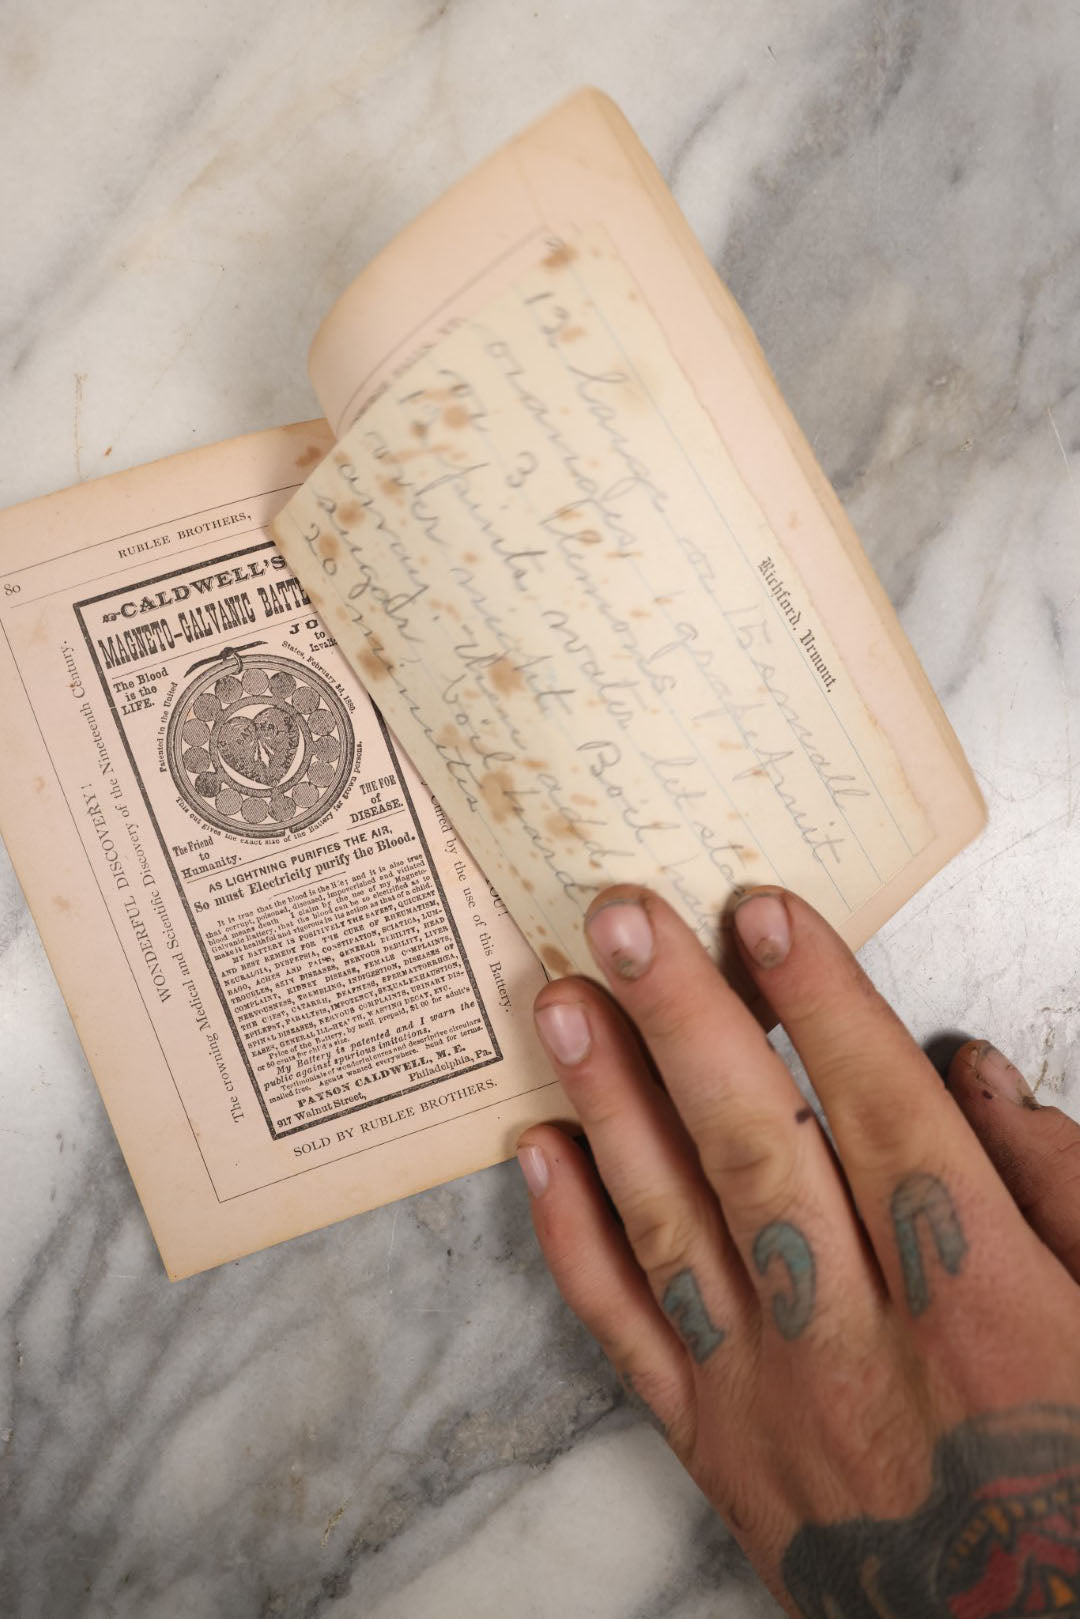 80
RUBLEE BROTHERS,
WONDERFUL DISCOVERY!
The crowning Medical and Scientific Discovery of the Nineteenth Century.
CALDWELL'S
MAGNETO-GALVANIC BATTE
The Blood
is the
LIFE.
JO
to
Invali
Patented in the United
States, February 3d, 1880.
This cut gives the exact size of the Battery for grown persons.
The Friend
to
Humanity.
THE FOE
of
DISEASE.
AS LIGHTNING PURIFIES THE AIR,
So must Electricity purify the Blood.
It is true that the blood is the life; and it is also true
that corrupt, poisoned, diseased, impoverished and vitiated
blood means death. I claim by the use of my Magneto-
Galvanic Battery, that the blood can be so electrified as to
make it healthful and vigorous in its action as that of a child.
MY BATTERY IS POSITIVELY THE SAFEST, QUICKEST
AND BEST REMEDY FOR THE CURE OF RHEUMATISM,
NEURALGIA, DYSPEPSIA, CONSTIPATION, SCIATICA, LUM-
BAGO, ACHES AND PAINS, GENERAL DEBILITY, HEAD
TROUBLES, SKIN DISEASES, NERVOUS DEBILITY, LIVER
COMPLAINT, KIDNEY DISEASE, FEMALE COMPLAINTS,
NERVOUSNESS, TREMBLING, INDIGESTION, DISEASES OF
THE CHEST, CATARRH, DEAFNESS, SPERMATORRHŒA,
EPILEPSY, PARALYSIS, IMPOTENCY, SEXUAL EXHAUSTION,
SPINAL DISEASES, NERVOUS COMPLAINTS, URINARY DIS-
EASES, GENERAL ILL-HEALTH, WASTING DECAY, ETC.
Price of the Battery, by mail, prepaid, $1.00 for adult's
or 50 cents for child's size.
My Battery is patented and I warn the
public against spurious imitations.
Testimonials of wonderful cures and descriptive circulars
mailed free. Agents wanted everywhere. Send for terms.
PAYSON CALDWELL, M. E.
917 Walnut Street, Philadelphia, Pa.
SOLD BY RUBLEE BROTHERS.
YOU!
cured by the use of this Battery.
Richford, Vermont.
12 large or 15 small
oranges 1 grapefruit
or 3 lemons. let stand
12 pints water
over night Boil
away then add
sugar, boil hard
20 minutes